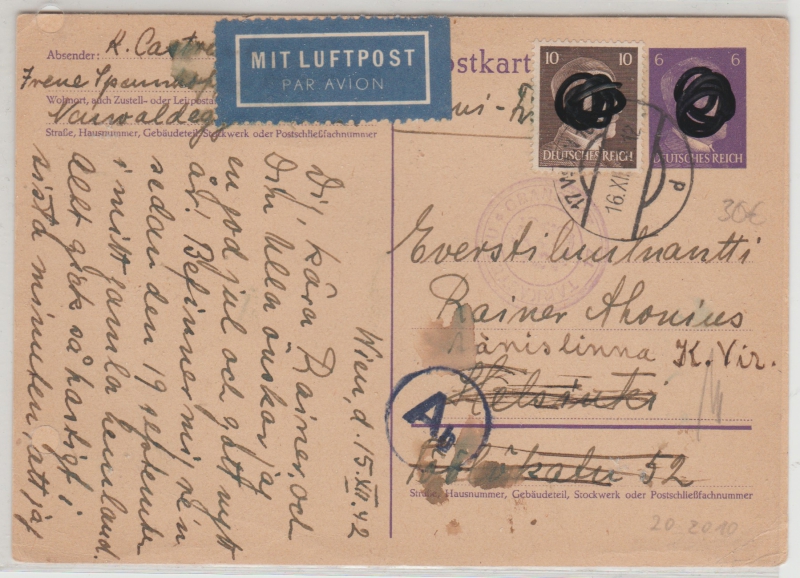 Absender: K. Castré
Irene
Wohnort, auch Zustell- oder Leitpostamt
Straße, Hausnummer, Gebäudeteil, Stockwerk oder Postschließfachnummer
MIT LUFTPOST
PAR AVION
Postkarte
10 10
DEUTSCHES REICH
6 6
DEUTSCHES REICH
16.XII
P
36€
Everstiluutnantti
Rainer Ahonius
Hänislinna K. Vir.
Helsinki
katu 52
Straße, Hausnummer, Gebäudeteil, Stockwerk oder Postschließfachnummer
20 2010
Ab
Wien, d. 15.XII.42
Di', kära Rainer, och
Din Ulla önskar jag
en god jul och gott nytt
år! Befinner mig re'n
sedan den 19 september
i mitt gamla hemland.
Allt gick så hastigt i
sista minuten, att jag